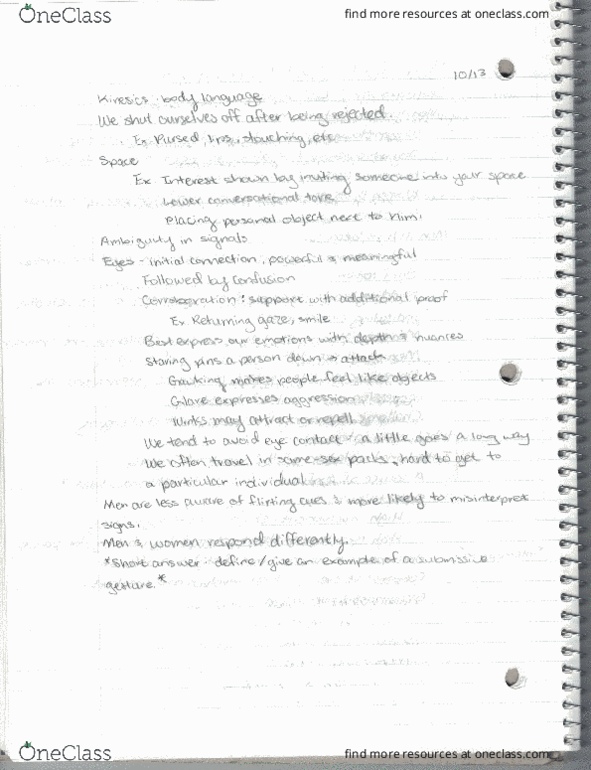 OneClass
find more resources at oneclass.com
10/13
Kinesics: body language
We shut ourselves off after being rejected.
Ex Pursed lips, slouching, etc.
Space
Ex Interest shown by inviting someone into your space
Lower conversational tone
Placing personal object next to him.
Ambiguity in signals
Eyes - initial connection, powerful & meaningful
Followed by confusion
Corroboration: support with additional proof
Ex Returning gaze, smile
Best express our emotions with depth & nuances
Staring pins a person down → attack
Gawking makes people feel like objects
Glare expresses aggression
Winks may attract or repell
We tend to avoid eye contact - a little goes a long way
We often travel in same-sex packs, hard to get to
a particular individual
Men are less aware of flirting cues & more likely to misinterpret
signs.
Men & women respond differently.
*Short answer: define/give an example of a submissive
gesture.*
OneClass
find more resources at oneclass.com